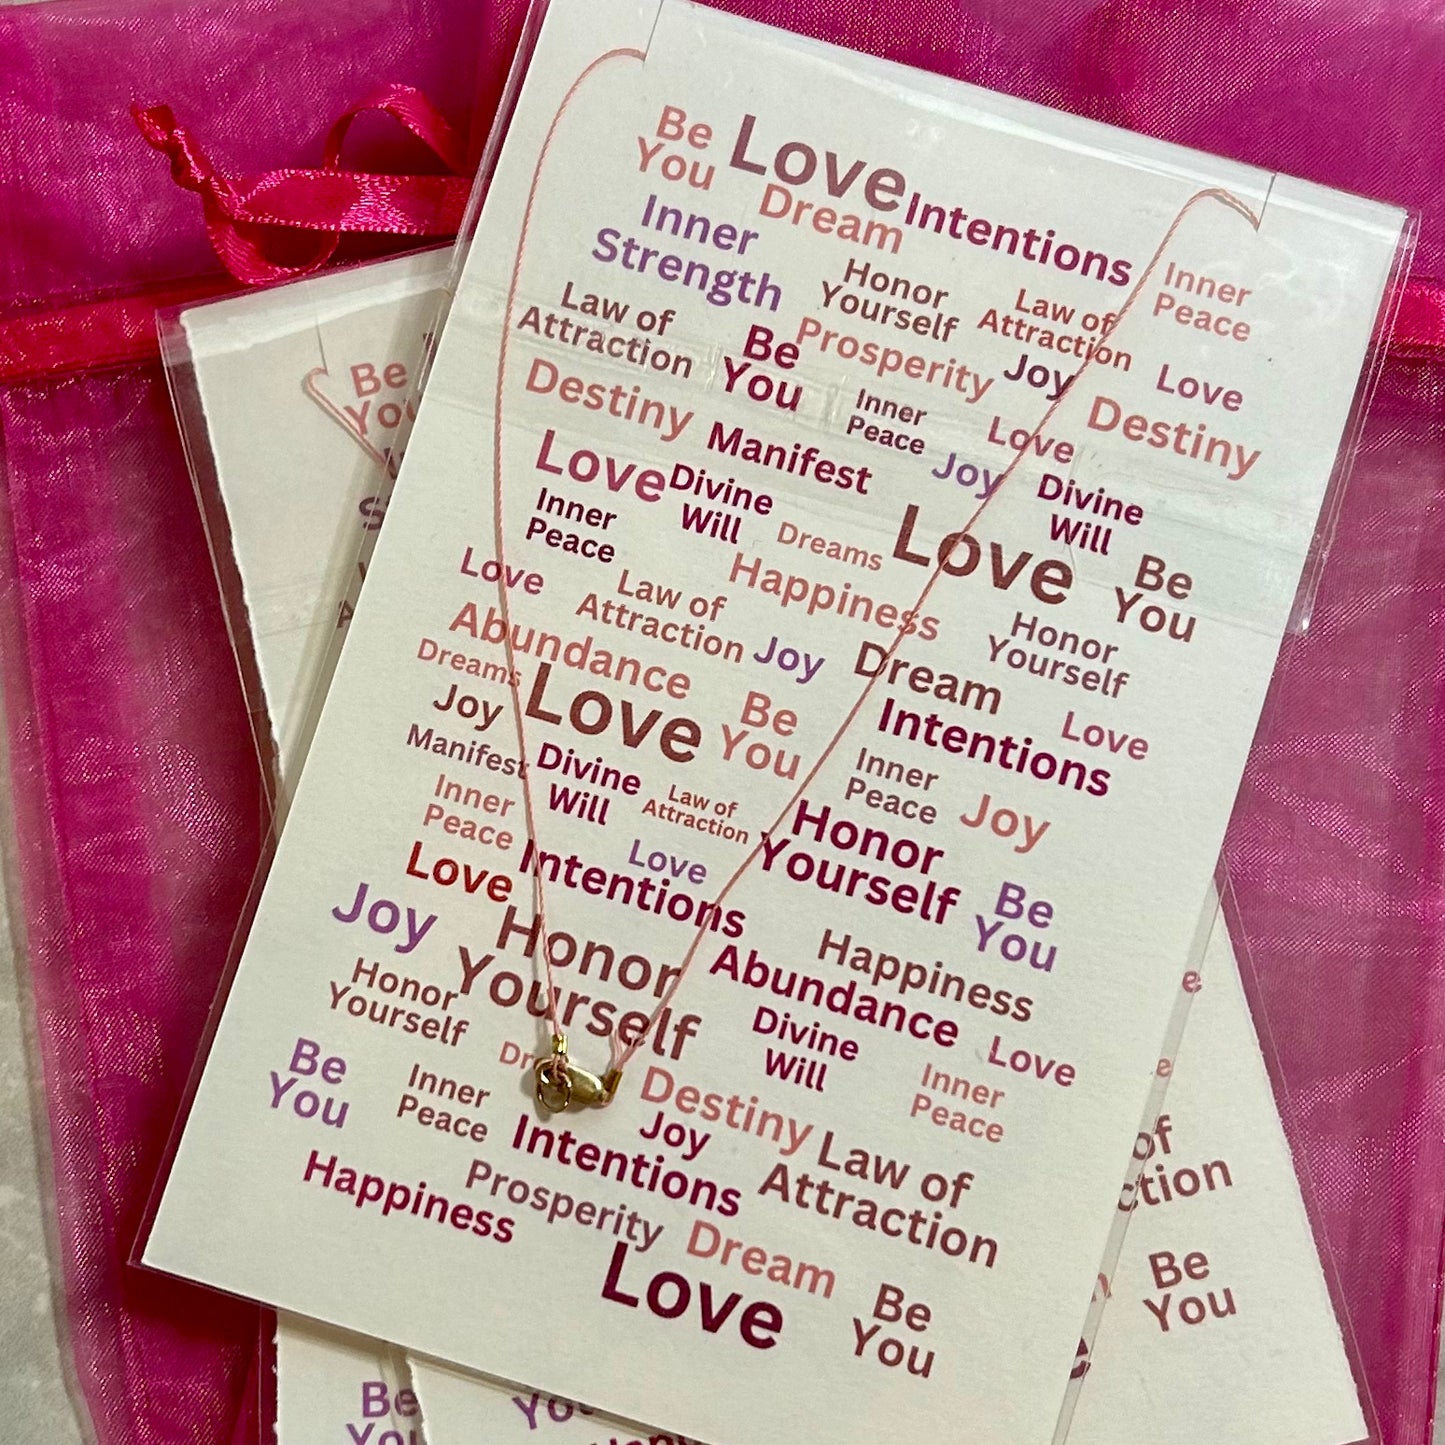 Be
You
Love
Dream
Intentions
Inner
Strength
Honor
Yourself
Law of
Attraction
Inner
Peace
Law of
Attraction
Be
You
Prosperity
Joy
Love
Destiny
Manifest
Inner
Peace
Love
Destiny
Love
Divine
Will
Joy
Divine
Will
Inner
Peace
Dreams
Love
Be
You
Love
Law of
Attraction
Happiness
Honor
Yourself
Abundance
Joy
Dream
Dreams
Love
Be
You
Intentions
Love
Joy
Manifest
Divine
Will
Law of
Attraction
Inner
Peace
Joy
Inner
Peace
Honor
Yourself
Love
Intentions
Love
Be
You
Joy
Honor
Yourself
Abundance
Happiness
Honor
Yourself
Divine
Will
Love
Be
You
Inner
Peace
Destiny
Inner
Peace
Intentions
Joy
Law of
Attraction
Happiness
Prosperity
Dream
Love
Be
You
Be
of
ction
Be
You
Be